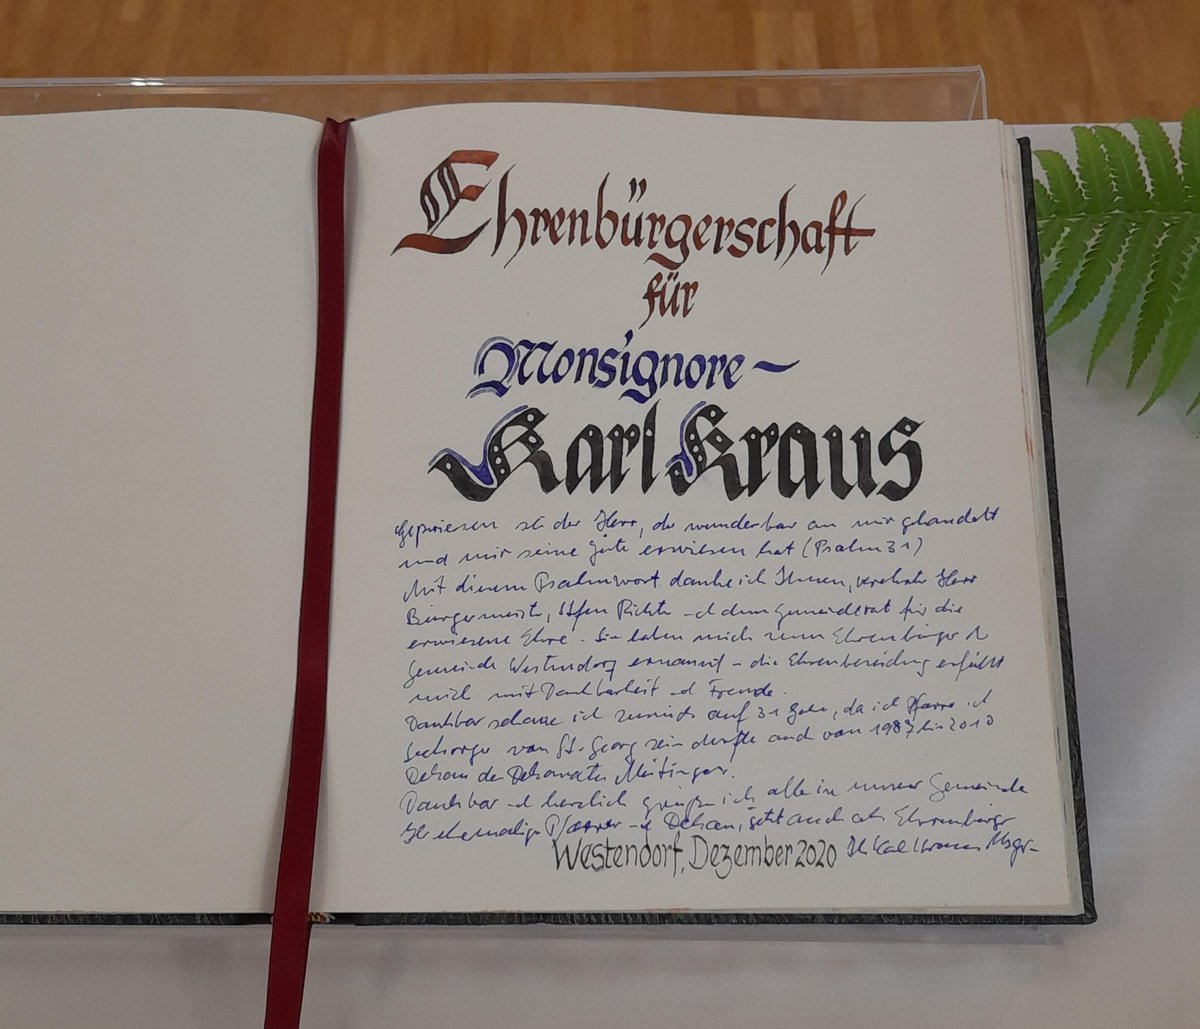 Ehrenbürgerschaft
für
Monsignore ~
Karl Kraus
Gepriesen sei der Herr, der wunderbar an mir gehandelt
und mir seine Güte erwiesen hat (Psalm 31)
Mit diesem Psalmwort danke ich Ihnen, verehrter Herr
Bürgermeister, Steffen Richter und dem Gemeinderat für die
erwiesene Ehre. Sie haben mich zum Ehrenbürger der
Gemeinde Westendorf ernannt – die Ehrenbezeichnung erfüllt
mich mit Dankbarkeit und Freude.
Dankbar schaue ich zurück auf 31 Jahre, da ich Pfarrer und
Seelsorger von St. Georg sein durfte und von 1987 bis 2010
Dekan des Dekanates Meitingen.
Dankbar und herzlich grüße ich alle in unserer Gemeinde
Ihr ehemaliger Pfarrer und Dekan, jetzt auch als Ehrenbürger
Westendorf, Dezember 2020 Karl Kraus Msgr.